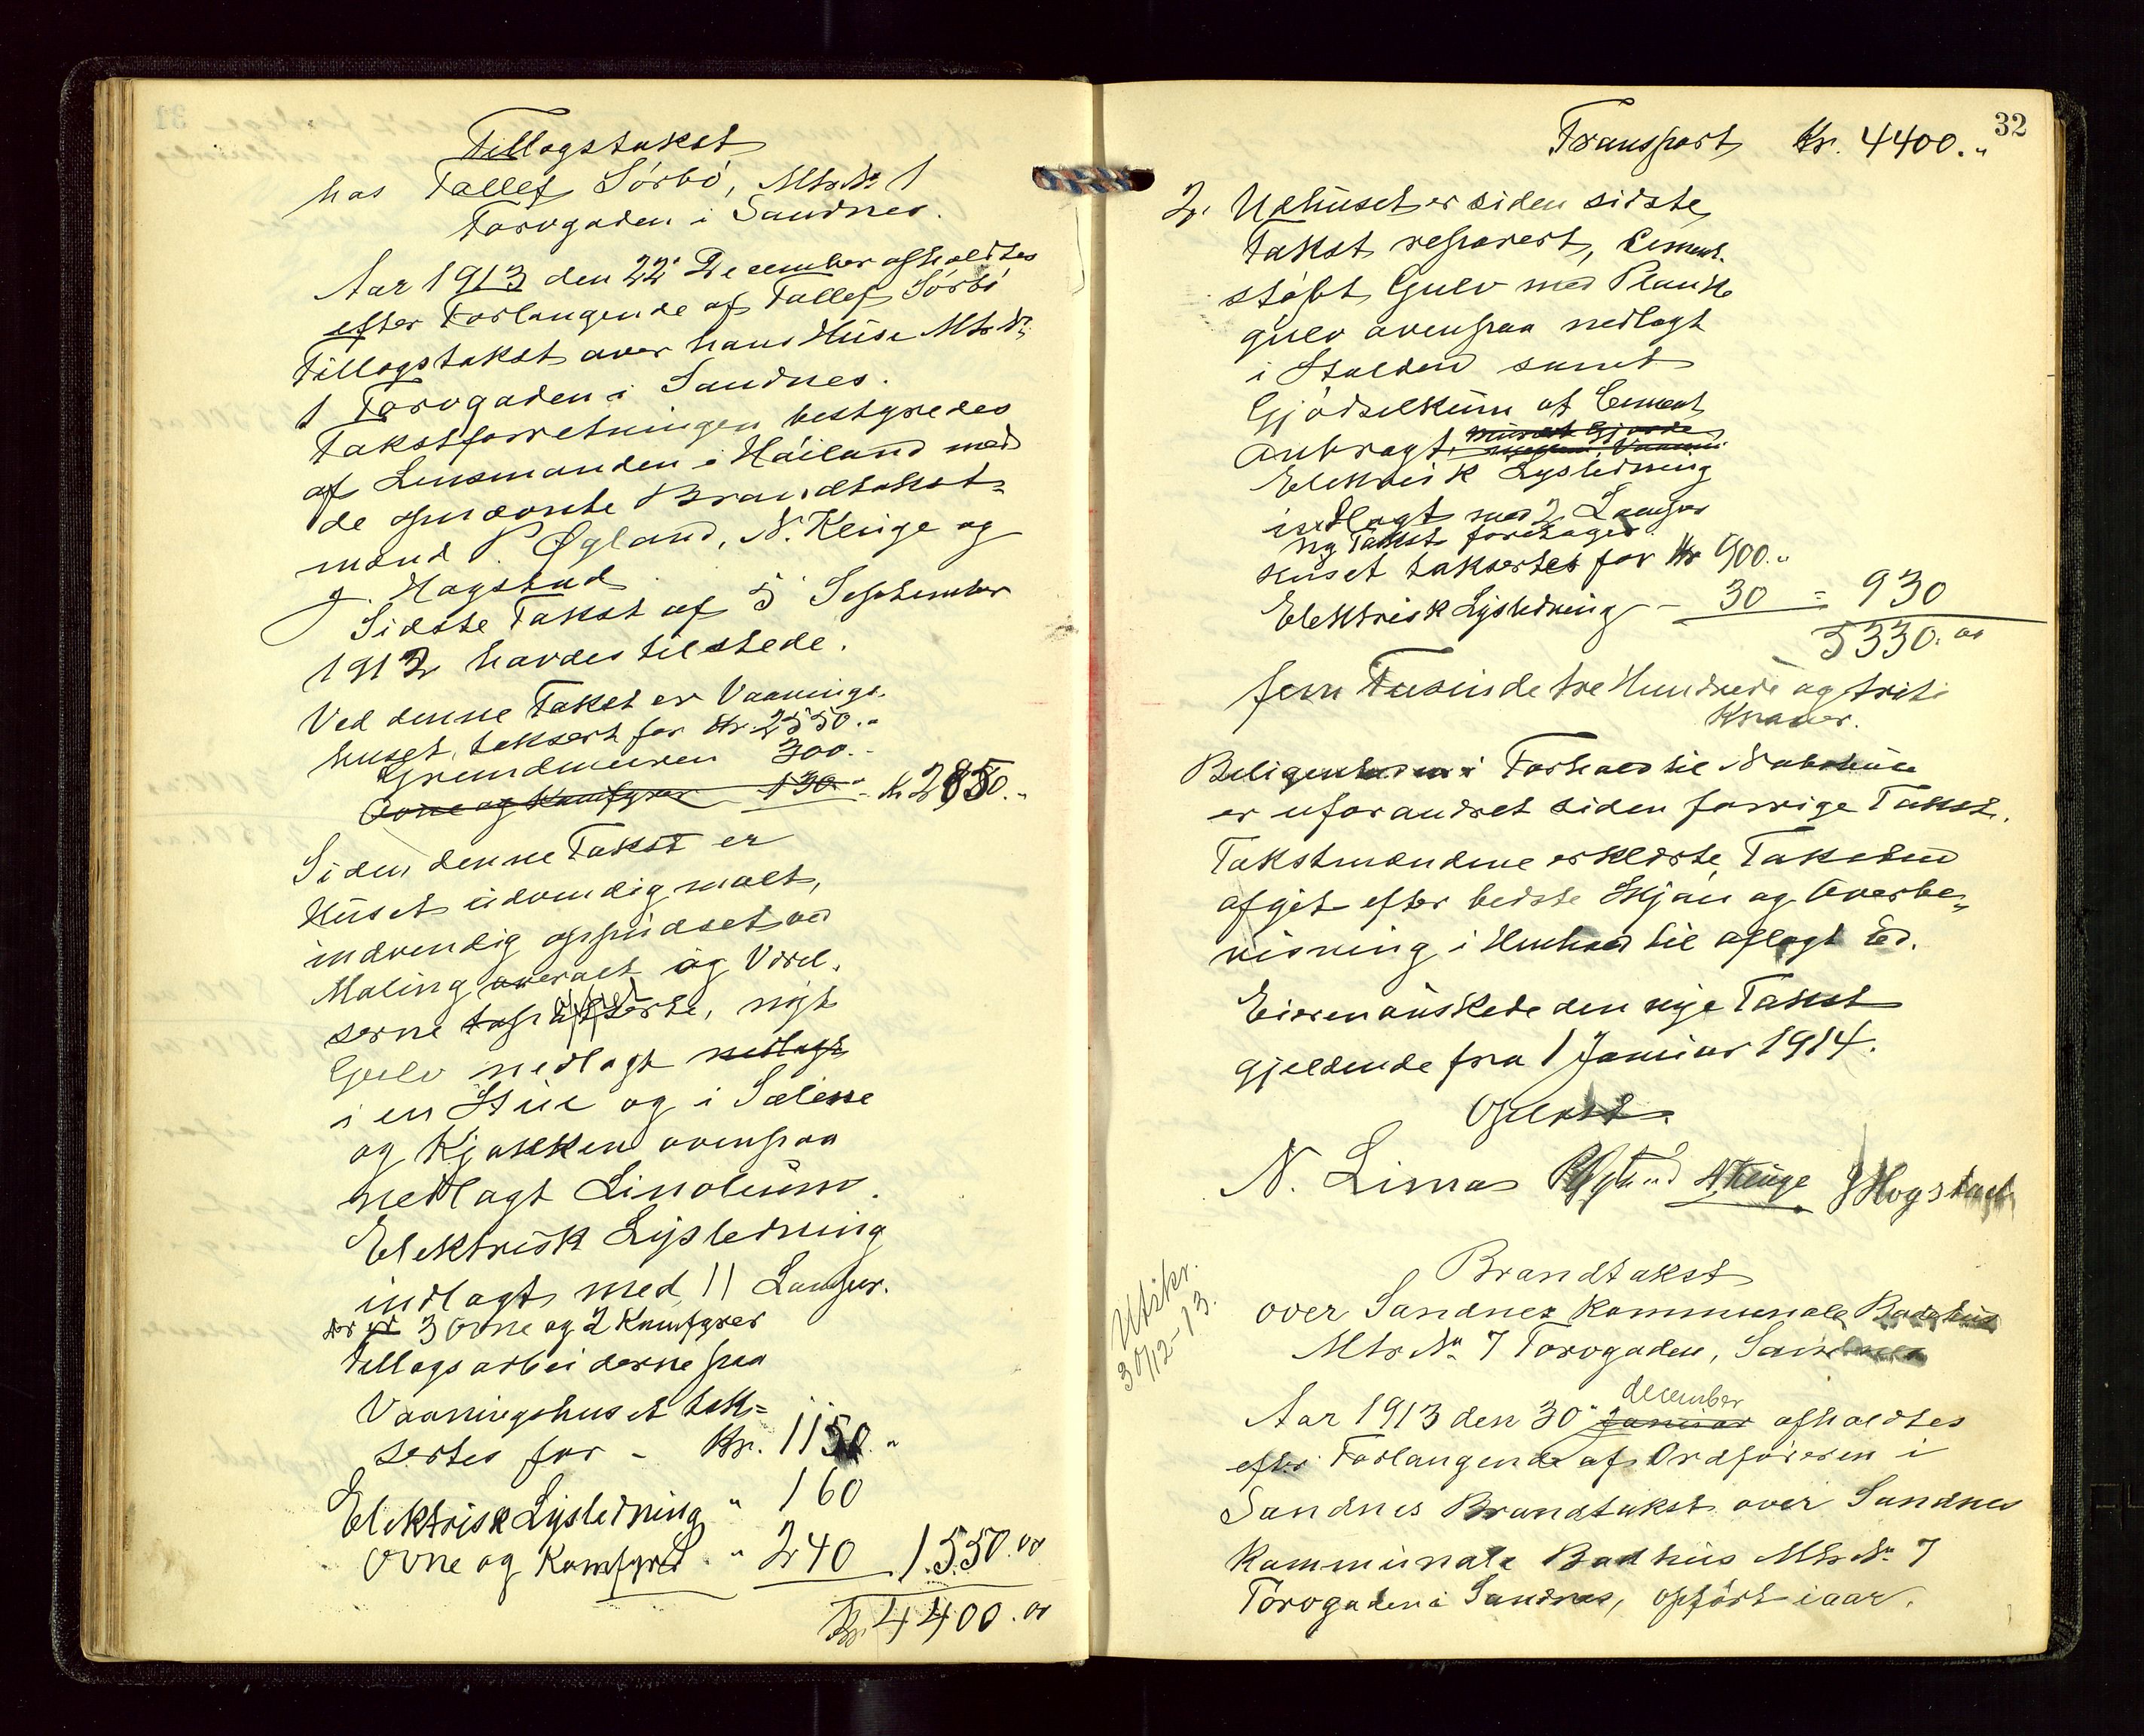 Tillægstakst
hos Tallef Sörbö, Mtr. № 1
Torvgaden i Sandnes.
Aar 1913 den 22' December afholdtes
efter Forlangende af Tallef Sörbö
Tillægstakst over hans Huse Mtr. №
1 Torvgaden i Sandnes.
Takstforretningen bestyredes
af Lensmanden i Höiland med
de opnævnte Brandtakst=
mænd P. Øgland, N. Kleige og
J. Hogstad
Sidste Takst af 5' September
1912 havdes tilstede.
Ved denne Takst er Vaanings-
huset taksert for Kr. 2550.-
Grundmuren 300.-
Ovne og Komfyrer 130.- Kr 2850.-
Siden denne Takst er
Huset udvendig malt,
indvendig oppudset ved
Maling overalt og Værel.
serne, nyt
Gulv nedlagt nedlagt
i en Stue og i Salene
og Kjøkken ovenpaa
nedlagt Linoleum.
Elektrisk Lysledning
indlagt med 11 Lamper.
der er 3 Ovne og 2 Komfyrer
Tillægsarbeiderne paa
Vaaningshuset tak=
sertes for - Kr. 1150.-
Elektrisk Lysledning " 160
Ovne og Komfyrer " 240 1550.00
Kr. 4400.00
32
Transport Kr. 4400.-
2. Udhuset er siden sidste
Takst reparert, Cement.
støbt Gulv med Planke
gulv ovenpaa nedlagt
i Stalden samt
Gjödselkum af Cement
anbragt.
Elektrisk Lysledning
indlagt med 2 Lamper
ny Takst foretages.
Huset taksertes for Kr 900.-
Elektrisk Lysledning - 30 = 930
5330.00
fem Tusinde tre Hundrede og triti
Kroner.
Beligenheden i Forhold til Nabohuse
er uforandret siden forrige Takst.
Takstmændene erklærte Taksten
afgit efter bedste Skjøn og Overbe=
visning i Henhold til aflagt Ed.
Eieren önskede den nye Takst
gjeldende fra 1 Januar 1914.
Oplæst.
N. Lima P Øgland N Kleige J Hogstad
Utskr.
30/12-13.
Brandtakst
over Sandnes Kommunale Badehus
Mtr № 7 Torvgaden, Sandnes
december
Aar 1913 den 30" Januar afholdtes
efter Forlangende af Ordföreren i
Sandnes Brandtakst over Sandnes
Kommunale Badhus Mtr № 7
Torvgaden i Sandnes, opfört i aar.